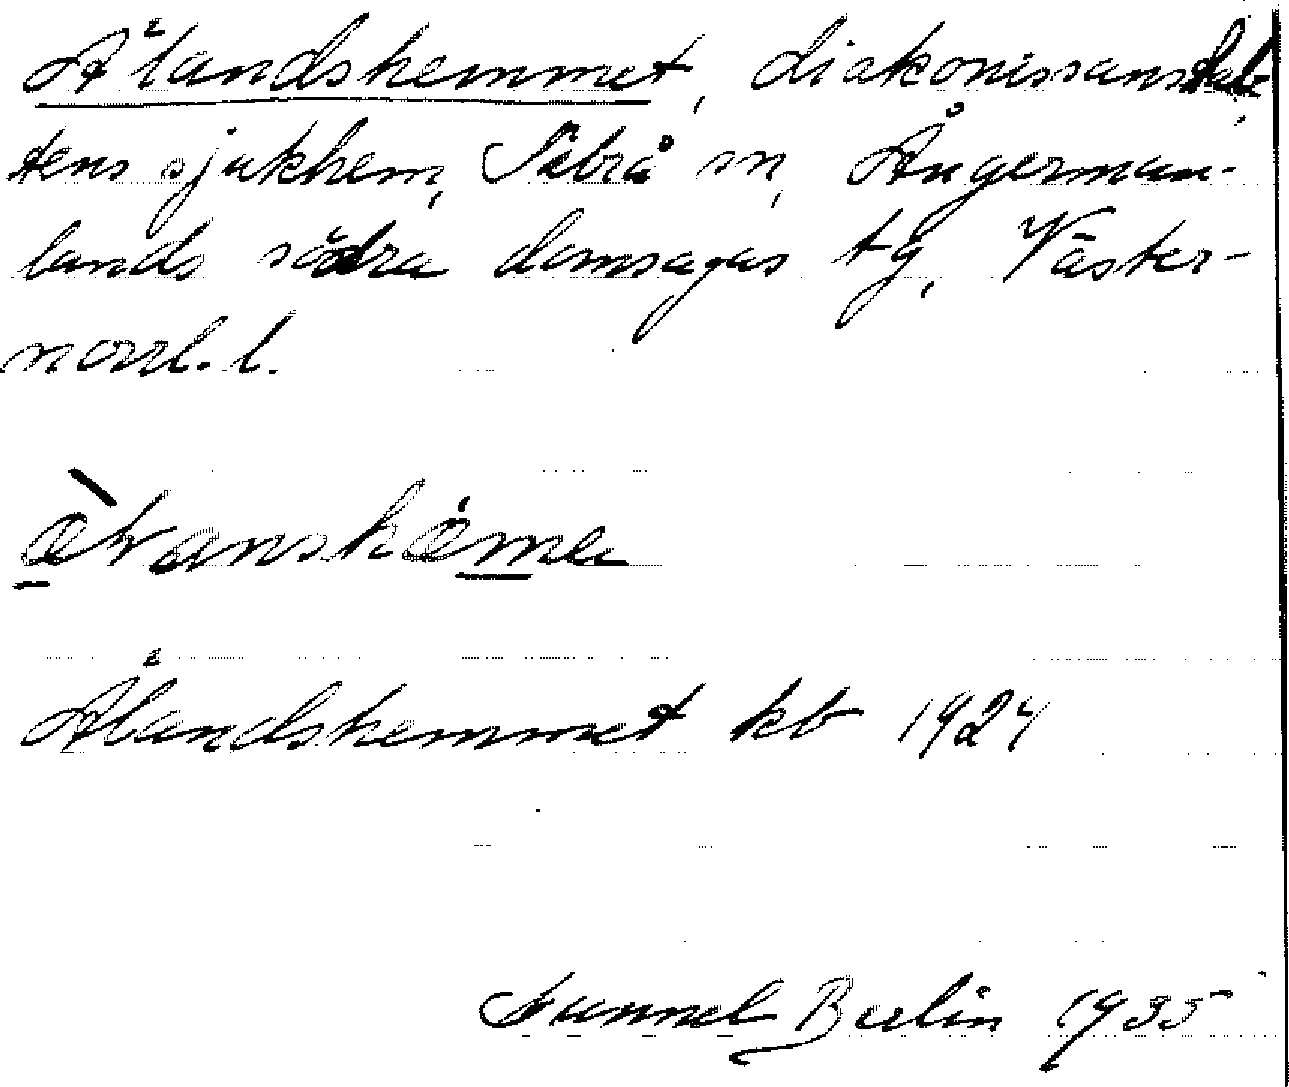 Ålandshemmet, diakonissanstal-
tens sjukhem, Säbrå sn, Ångerman-
lands södra domsagas tg, Väster-
norrl. l.
Ålandshemmet kb 1924
Gunnel Berlin 1935